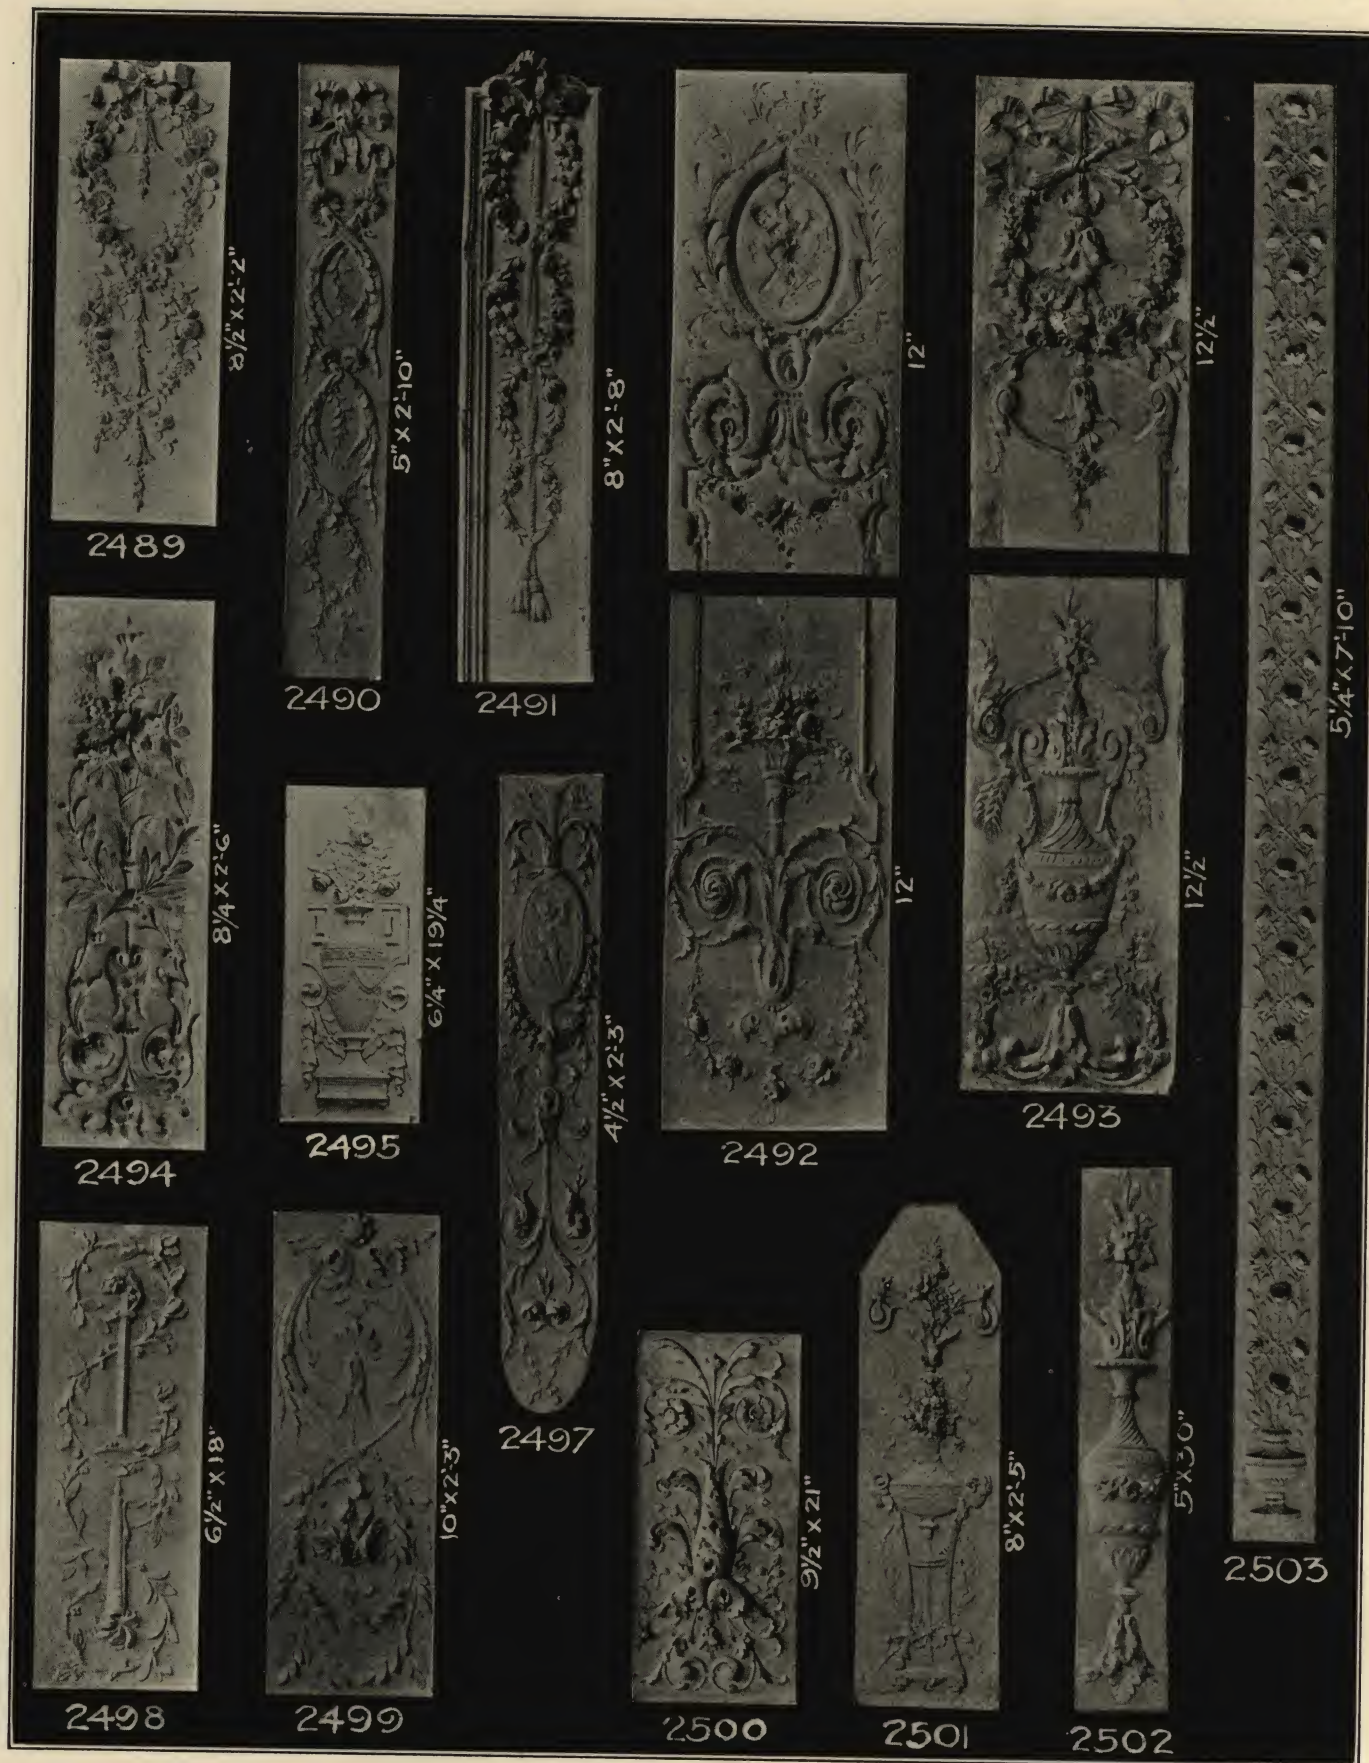 8½" X 2'-2"
2489
5" X 2'-10"
2490
8" X 2'-8"
2491
12"
12½"
5¼" X 7'-10"
8¼ X 2'-6"
2494
6¼" X 19¼"
2495
4½" X 2'-3"
2497
12"
2492
12½"
2493
6½" X 18"
2498
10" X 2'-3"
2499
9½" X 21"
2500
8" X 2'-5"
2501
5" X 30"
2502
2503